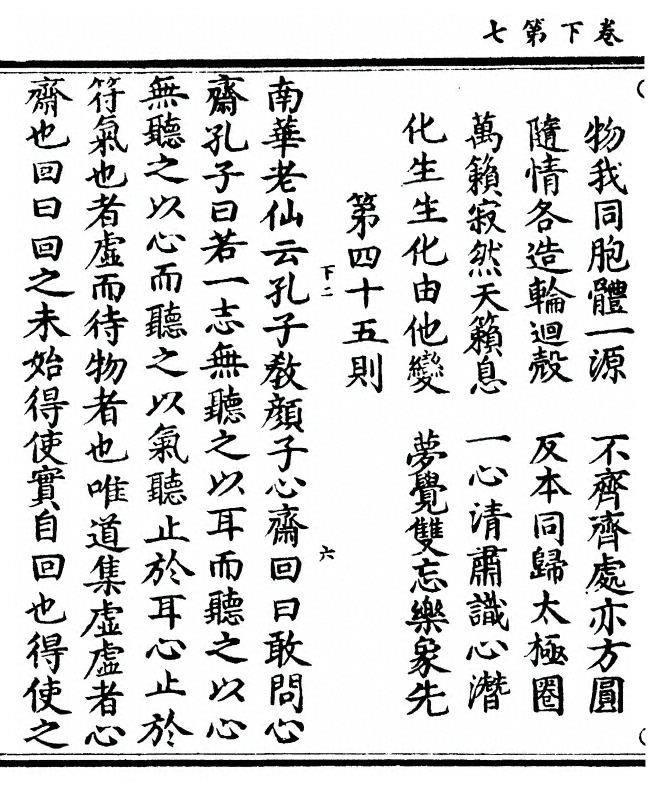 卷下第七
物我同胞體一源　不齊齊處亦方圓
隨情各造輪迴殼　反本同歸太極圈
萬籟寂然天籟息　一心清肅識心潛
化生生化由他變　夢覺雙忘樂象先
第四十五則
下二
六
南華老仙云孔子教顏子心齋回曰敢問心
齋孔子曰若一志無聽之以耳而聽之以心
無聽之以心而聽之以氣聽止於耳心止於
符氣也者虛而待物者也唯道集虛虛者心
齋也回曰回之未始得使實自回也得使之